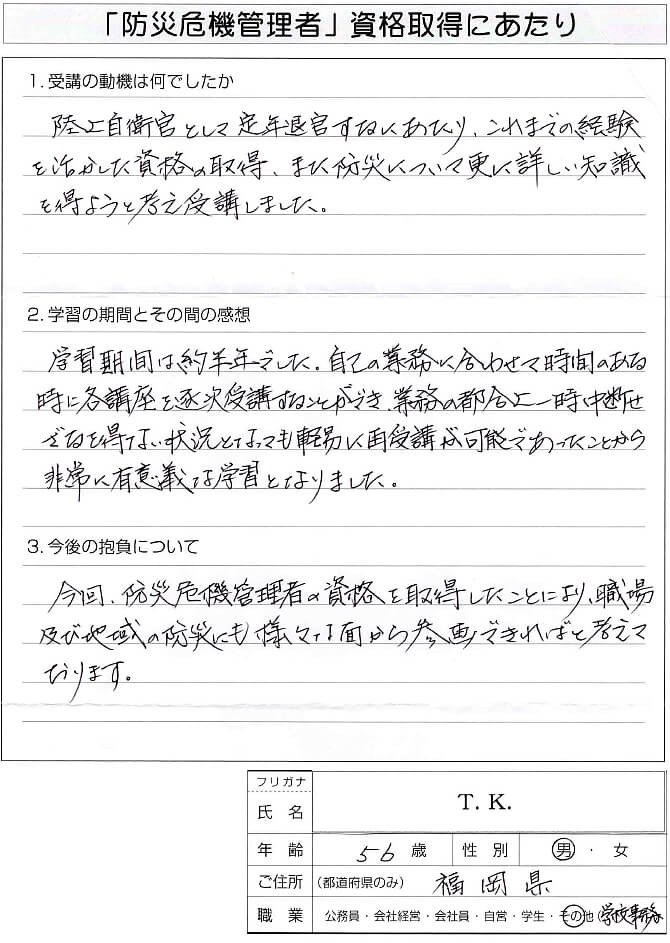 「防災危機管理者」資格取得にあたり
1. 受講の動機は何でしたか
陸上自衛官として定年退官するにあたり、これまでの経験
を活かした資格の取得、また防災について更に詳しい知識
を得ようと考え受講しました。
2. 学習の期間とその間の感想
学習期間は約半年でした。自己の業務に合わせて時間のある
時に各講座を逐次受講することができ、業務の都合上一時中断せ
ざるを得ない状況となっても軽易に再受講が可能であったことから
非常に有意義な学習となりました。
3. 今後の抱負について
今回、防災危機管理者の資格を取得したことにより、職場
及び地域の防災にも様々な面から参画できればと考えて
おります。
フリガナ
氏 名 T. K.
年 齢 56 歳 性 別 男 ・ 女
ご住所 (都道府県のみ) 福岡県
職 業 公務員・会社経営・会社員・自営・学生・その他 ( 学校事務